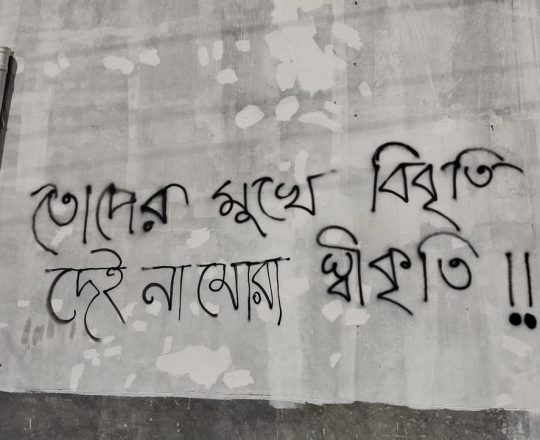 তোদের মুখে বিবৃতি
দেই না মোরা স্বীকৃতি !!